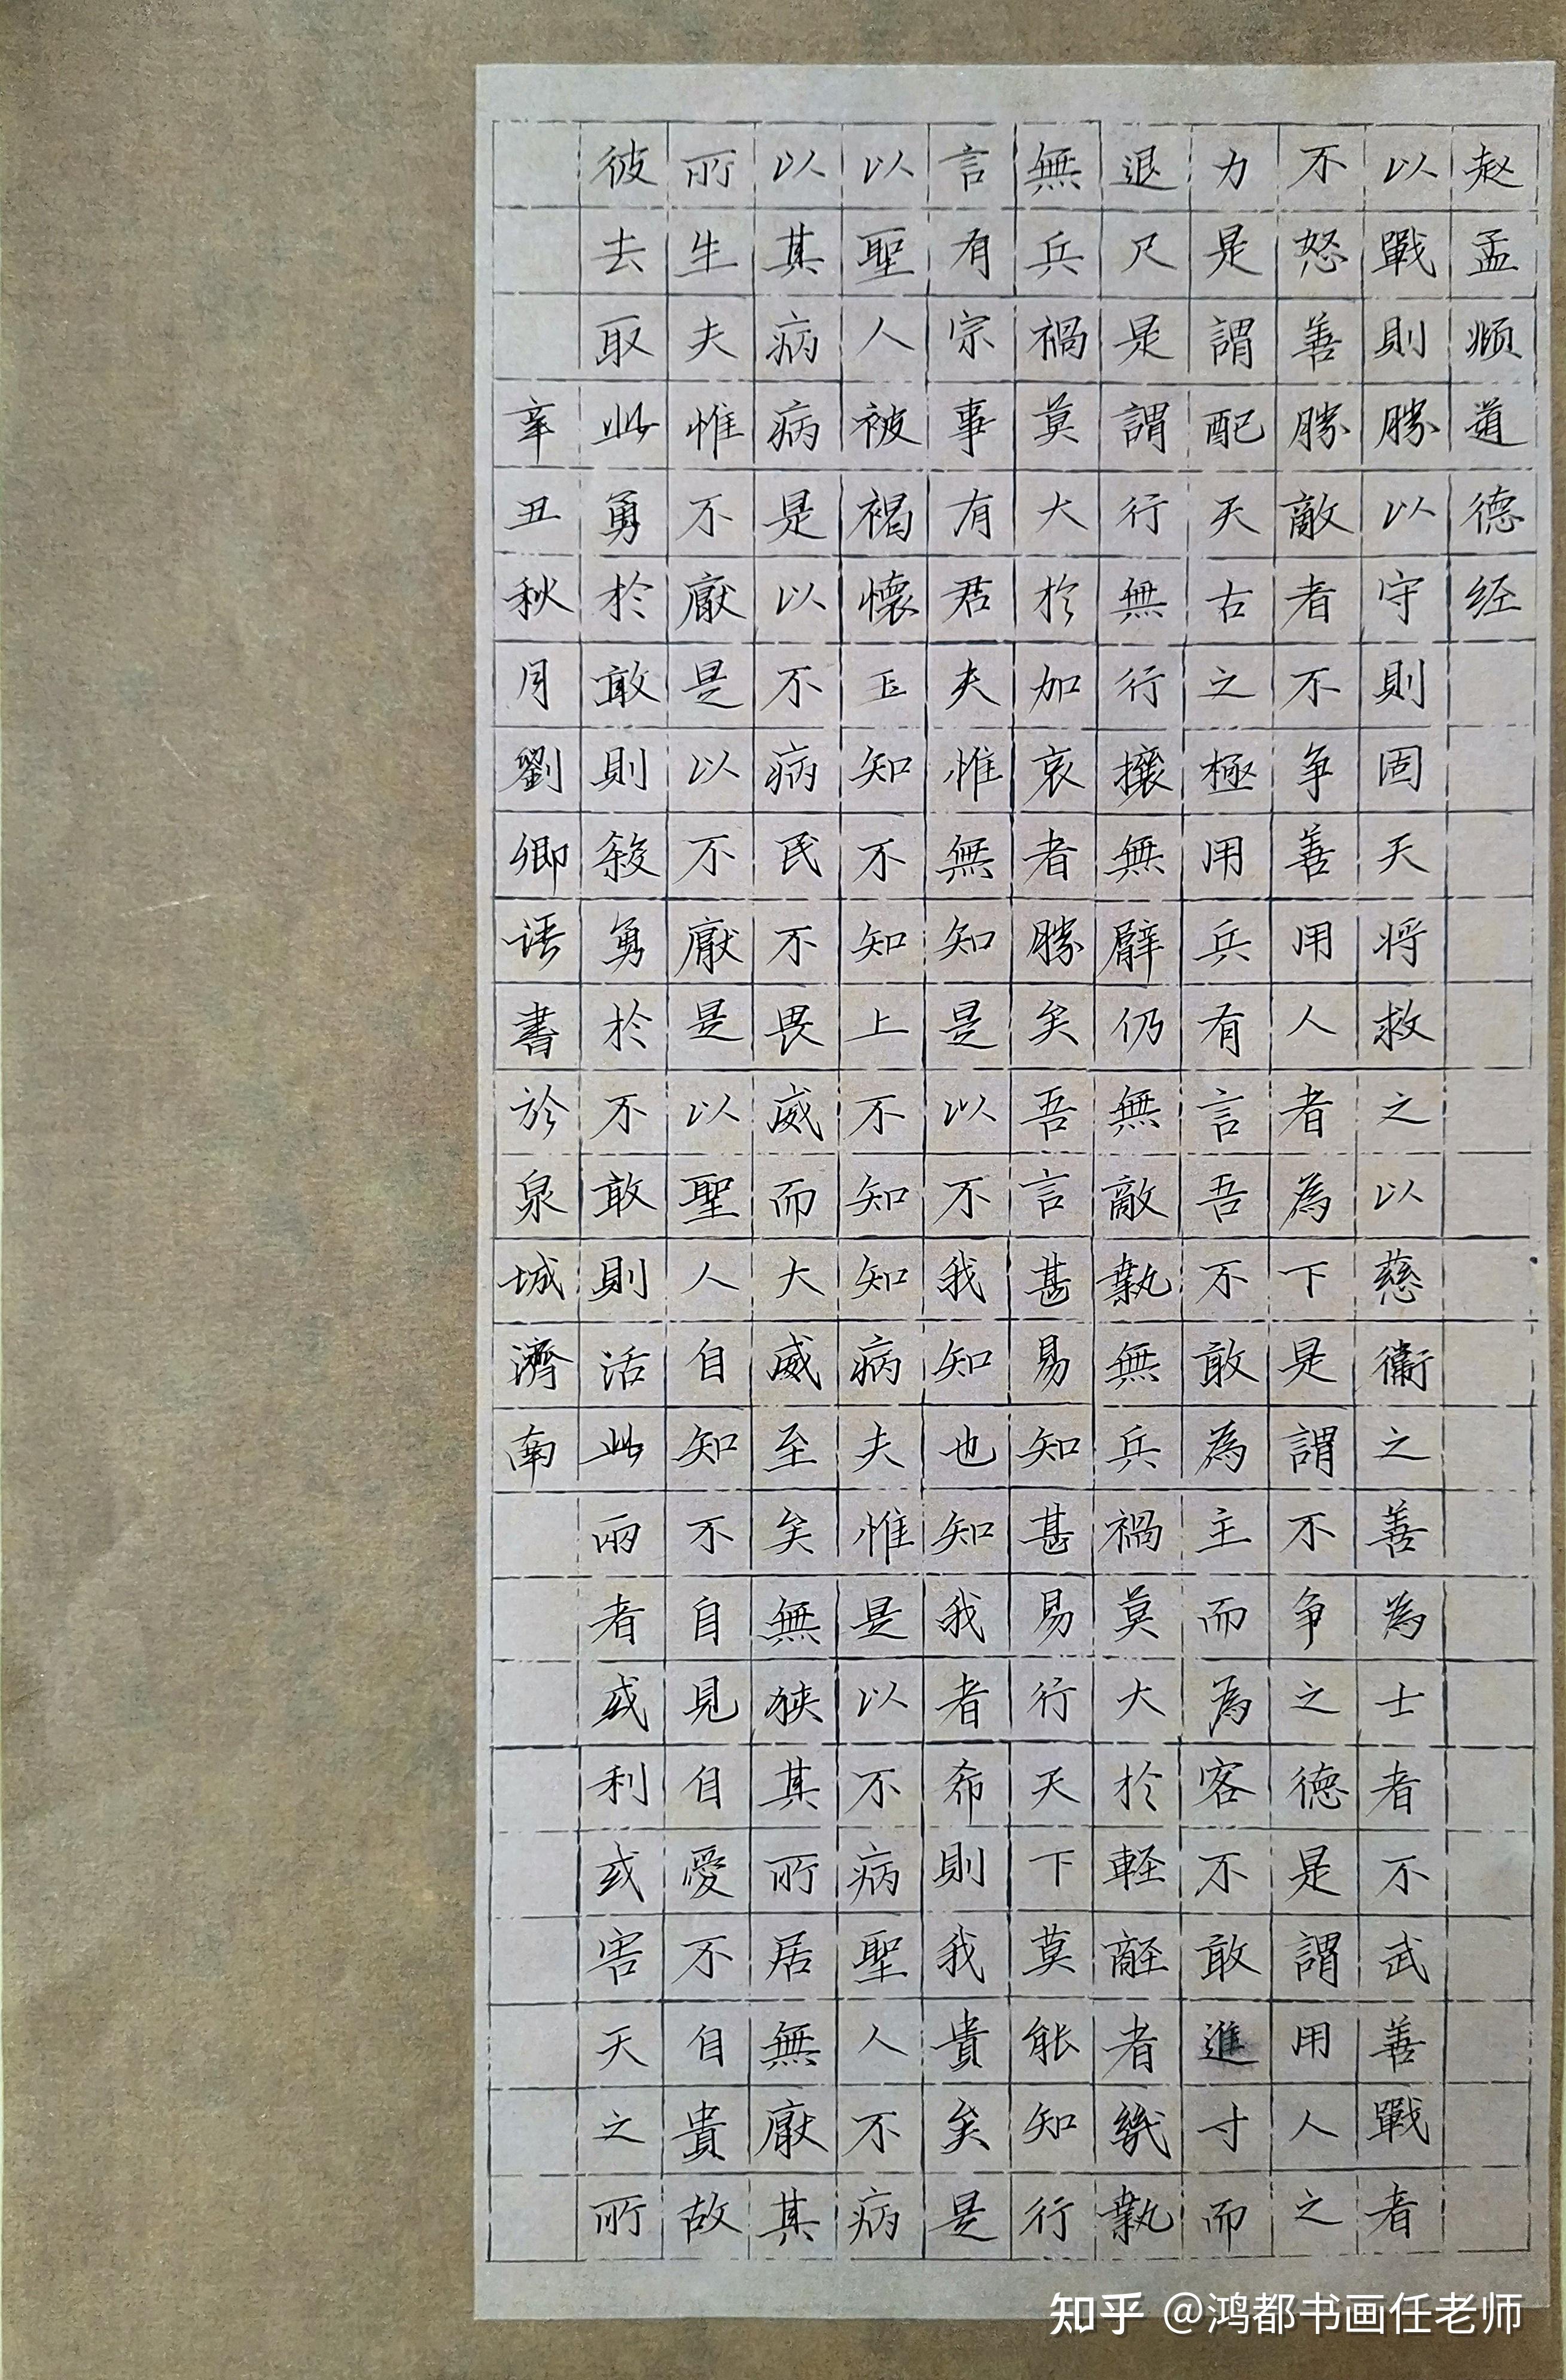 赵孟頫道德经
以戰則勝以守則固天将救之以慈衛之善為士者不武善戰者
不怒善勝敵者不争善用人者為下是謂不争之德是謂用人之
力是謂配天古之極用兵有言吾不敢為主而為客不敢進寸而
退尺是謂行無行攘無臂仍無敵執無兵禍莫大於軽敵者幾執
無兵禍莫大於加哀者勝矣吾言甚易知甚易行天下莫能知行
言有宗事有君夫惟無知是以不我知也知我者希則我貴矣是
以聖人被褐懷玉知不知上不知知病夫惟是以不病聖人不病
以其病病是以不病民不畏威而大威至矣無狹其所居無厭其
所生夫惟不厭是以不厭是以聖人自知不自見自愛不自貴故
彼去取此勇於敢則殺勇於不敢則活此兩者或利或害天之所
辛丑秋月劉卿语書於泉城濟南
知乎 @鸿都书画任老师